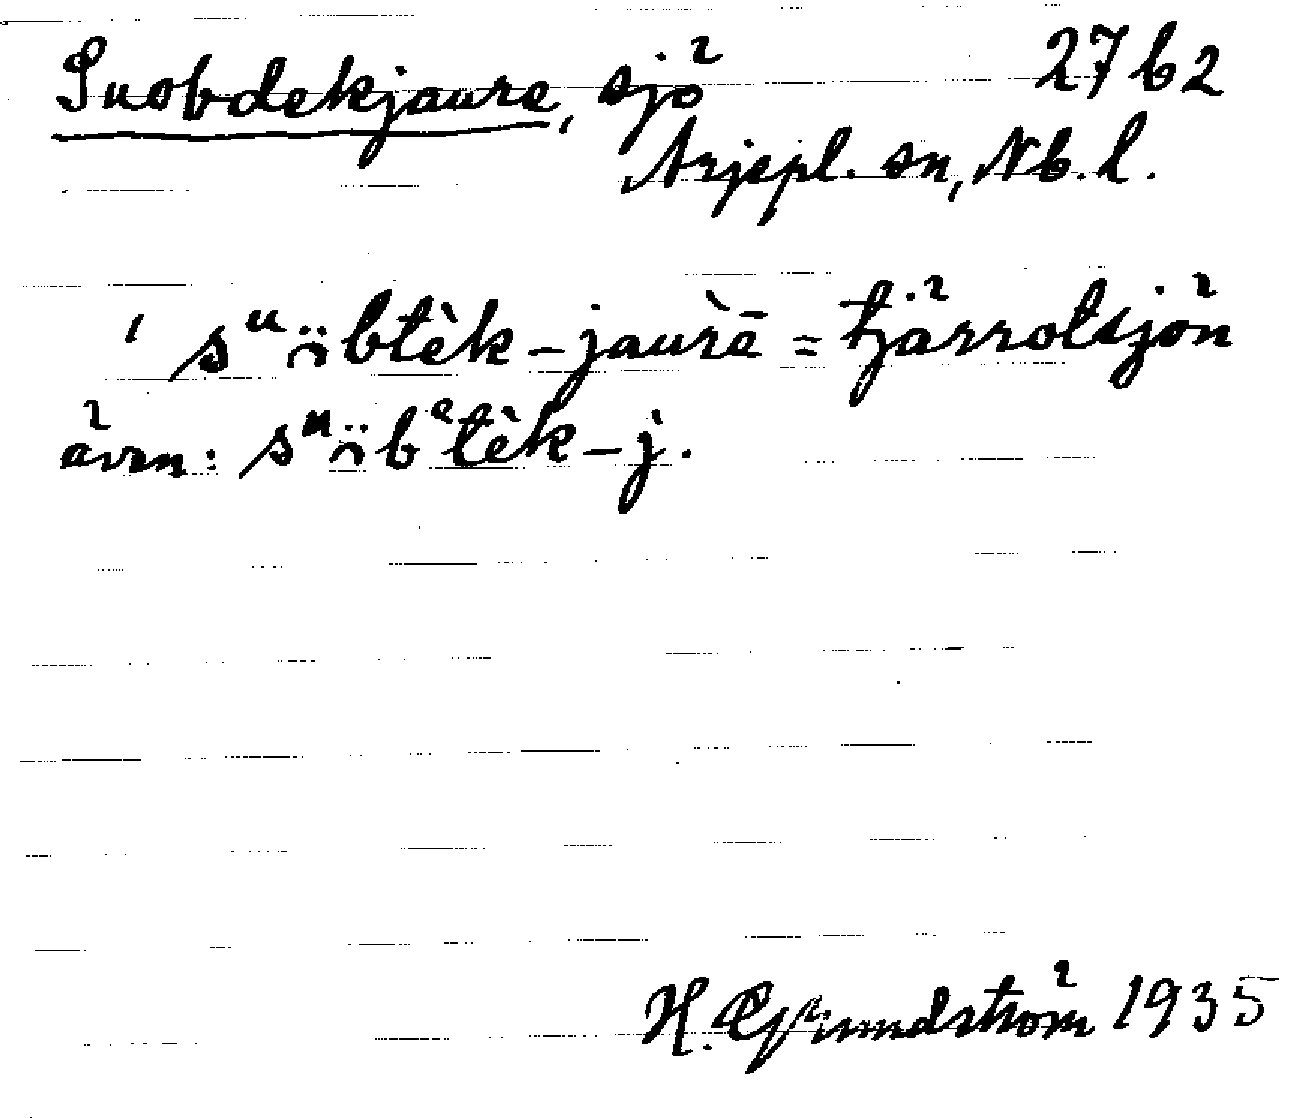 Suobdekjaure, sjö 27 b 2
Arjepl. sn, Nb. l.
' sᵘöbtèk-jaùrē = tjärrotsjön
även: sᵘöbᵉtèk-j.
H. Grundström 1935